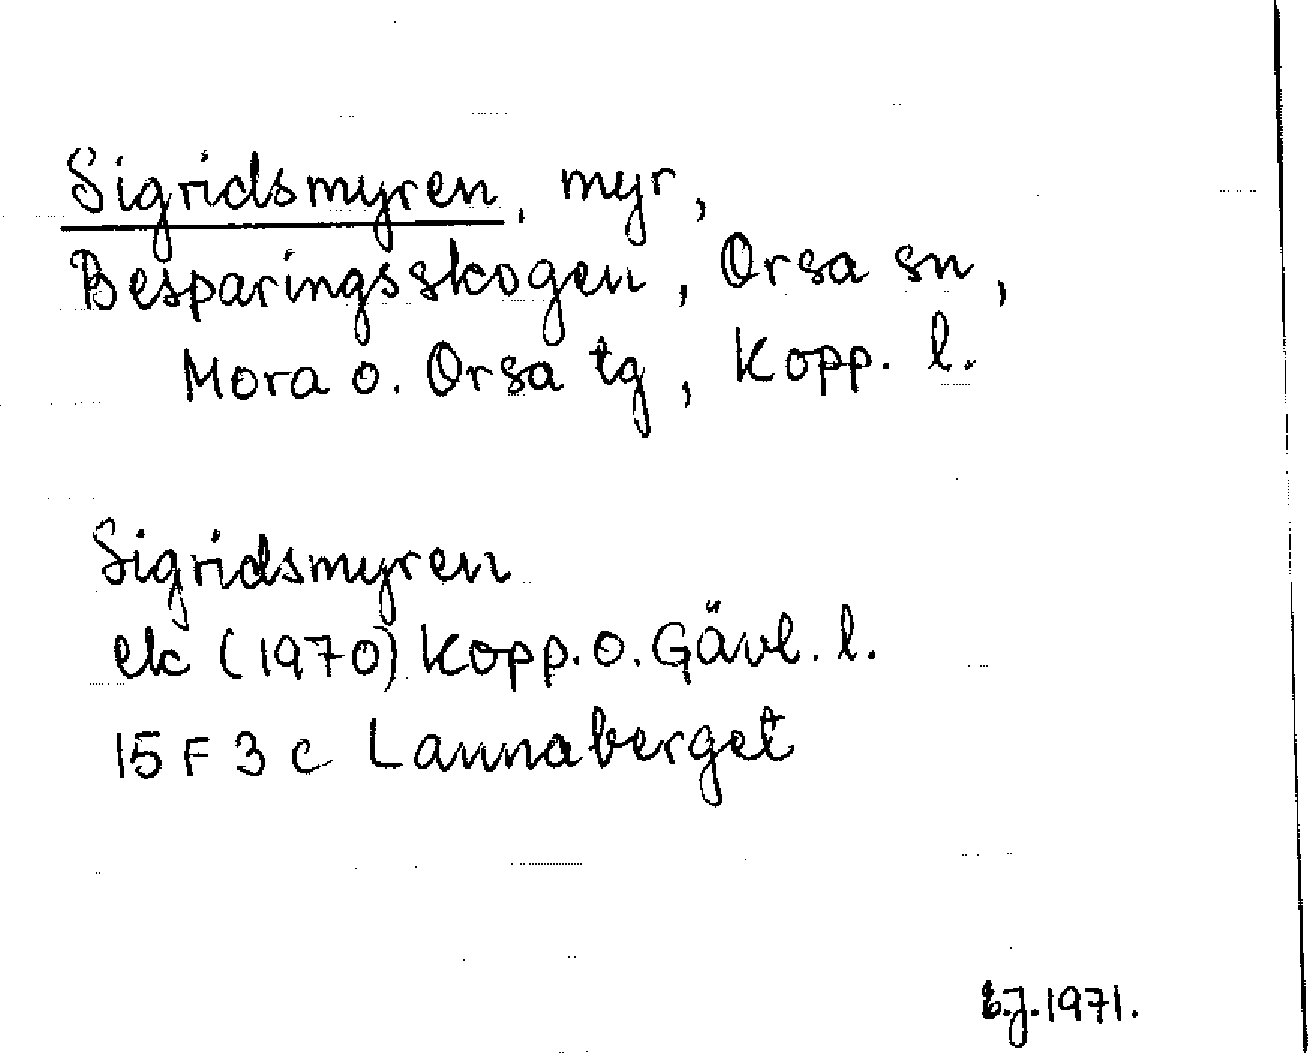 Sigridsmyren, myr,
Besparingsskogen, Orsa sn,
Mora o. Orsa tg, Kopp. l.
Sigridsmyren
ek (1970) Kopp. o. Gävl. l.
15 F 3 c Lannaberget
E.J. 1971.